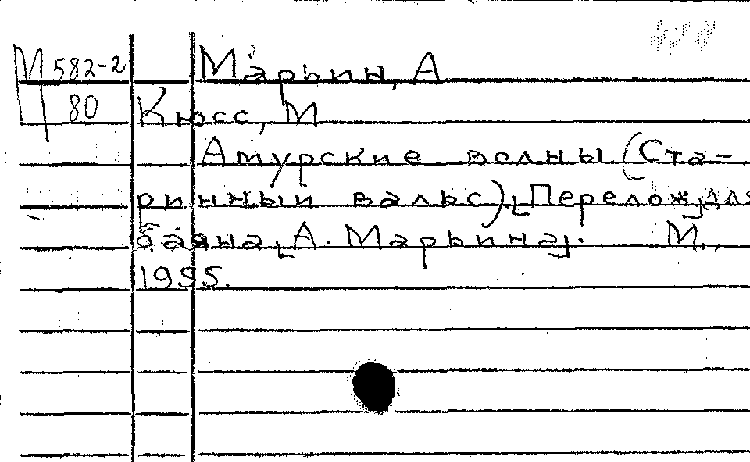 М 582-2
80
Марьин, А
Кюсс, М
Амурские волны (Ста-
ринный вальс). [Перелож. для
баяна [А. Марьина]. М.,
1955.